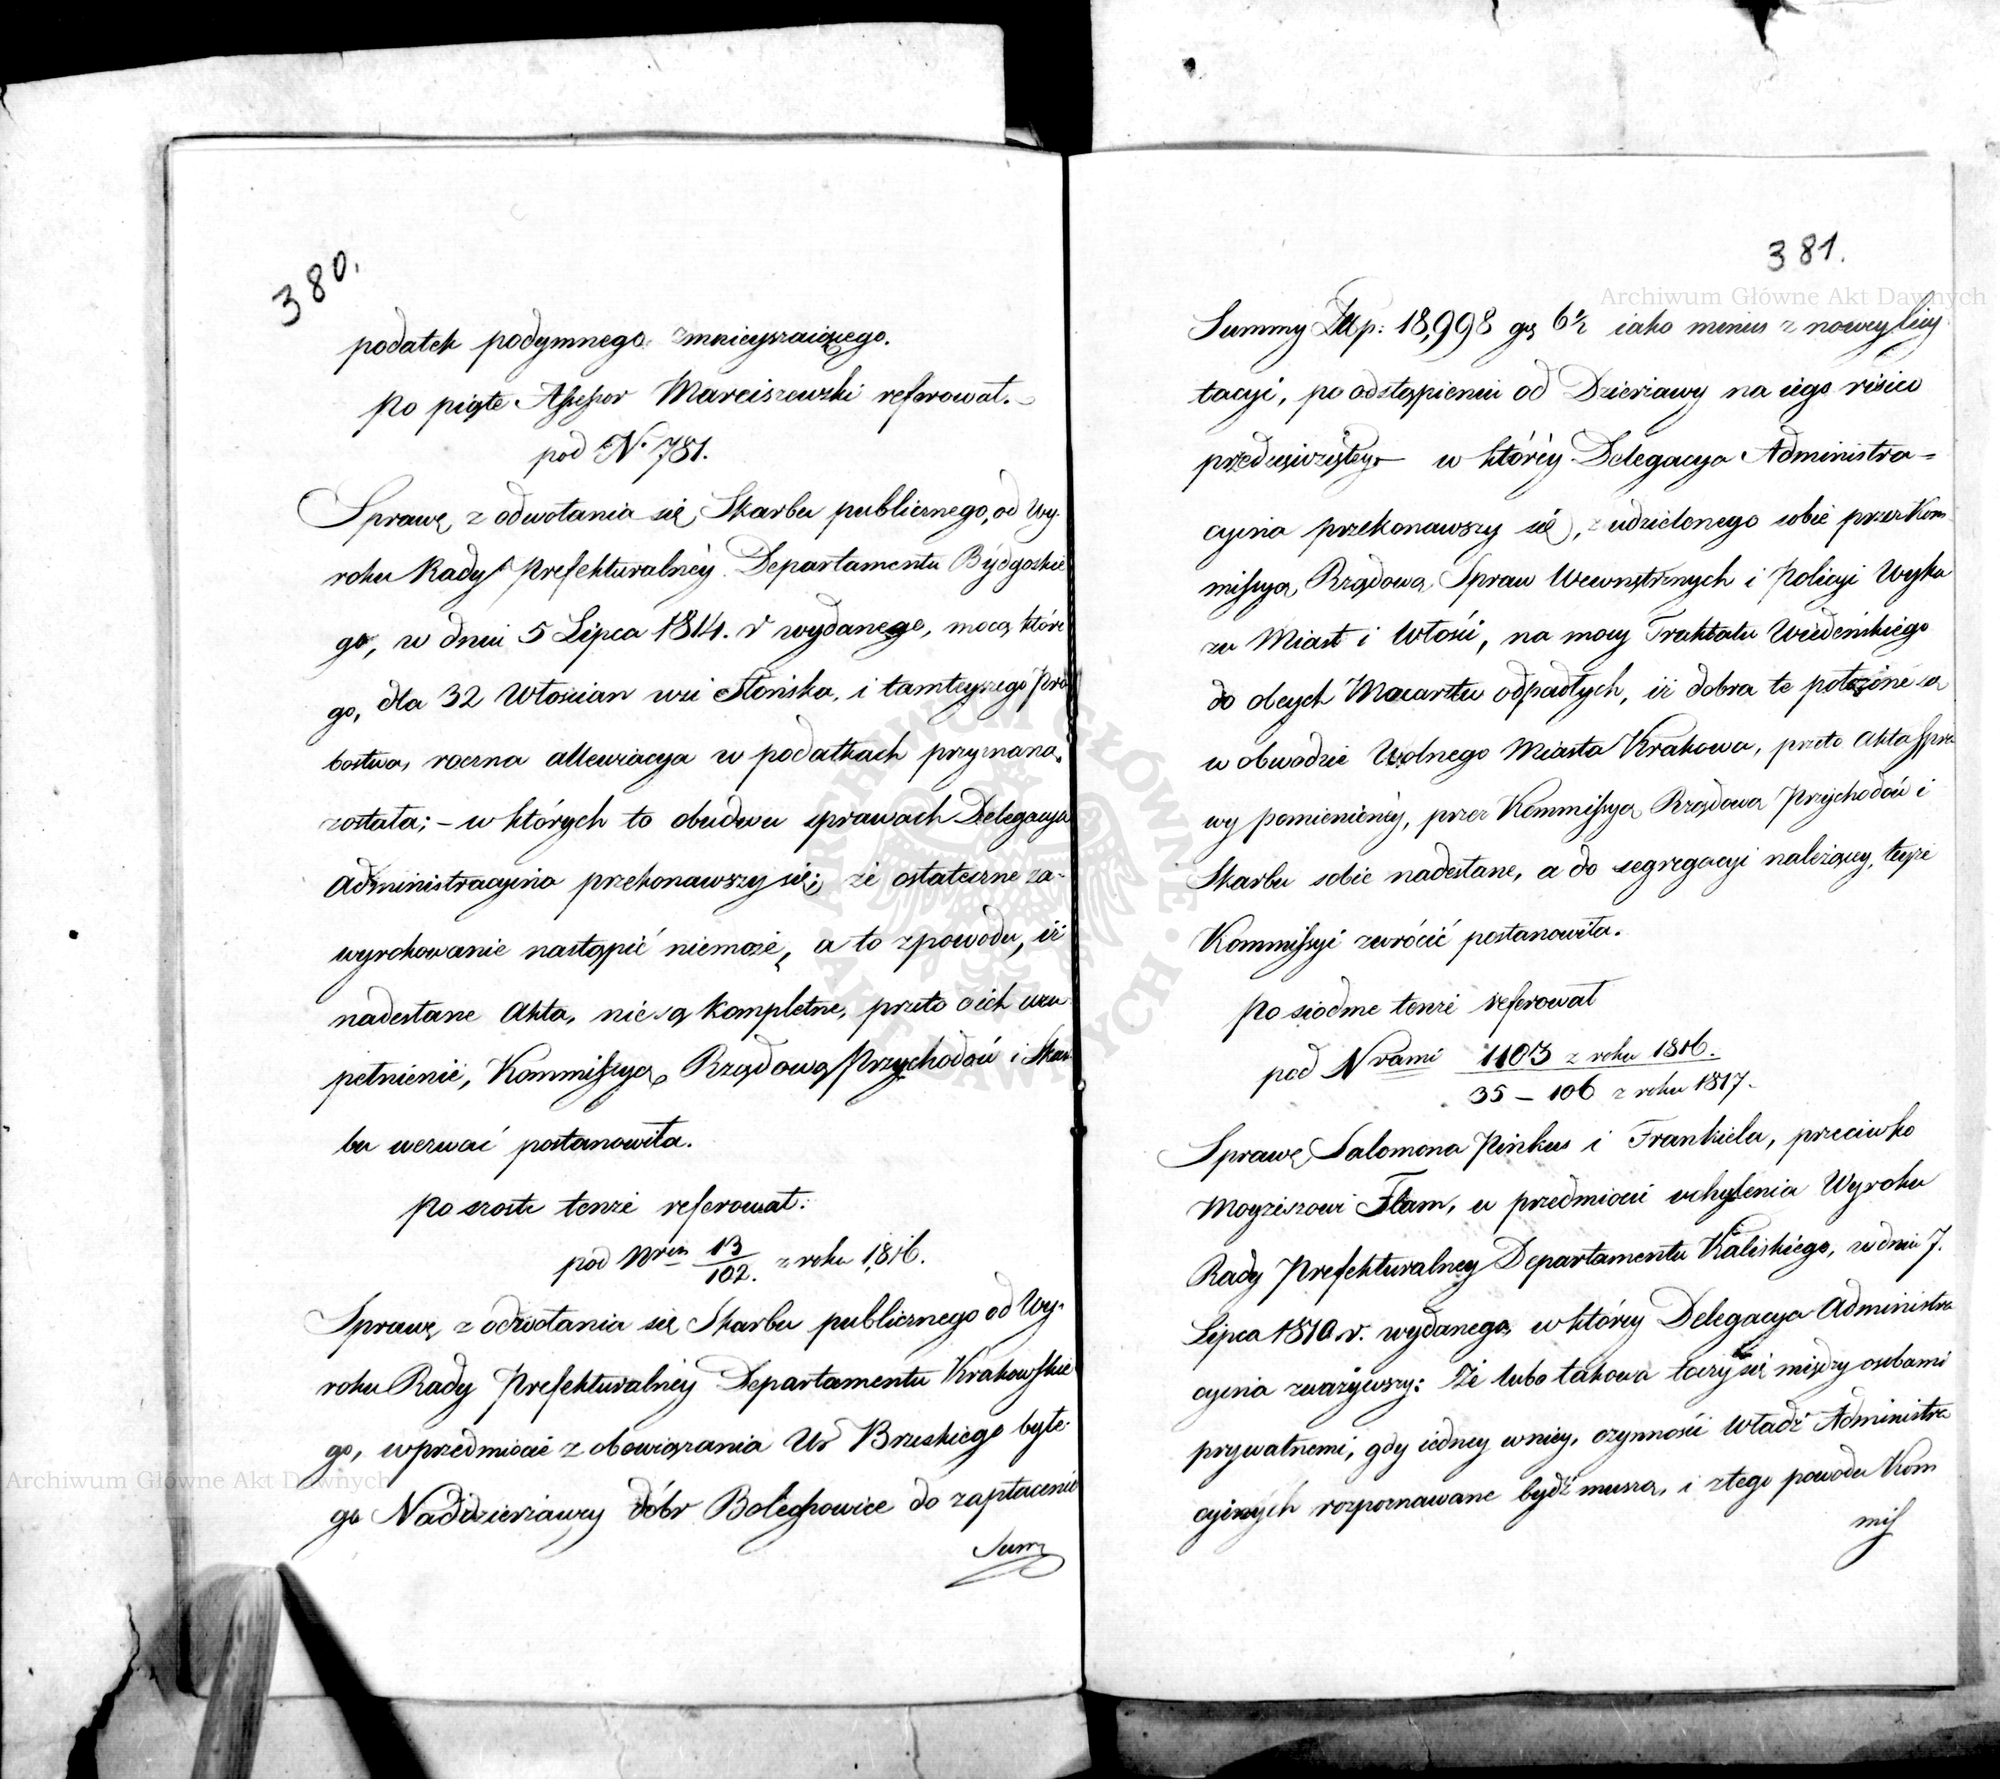 380.
podatek podymnego zmnieyszaiącego.
Po piąte Assessor Marciszewski referował.
pod N. 781.
Sprawę z odwołania się Skarbu publicznego, od Wy-
roku Rady Prefekturalnéy Departamentu Bydgoskie
go, w dniu 5 Lipca 1814. r wydanego, mocą które
go, dla 32 Włościan wsi Słońska, i tamteyszego Pro
bostwa, roczna allewiacya w podatkach przyznana
została; – w których to obudwu sprawach Delegacya
Administracyina przekonawszy się; że ostateczne za-
wyrokowanie nastąpić niemoże, a to z powodu, iż
nadesłane Akta, nie są kompletne, przeto o ich uzu
pełnienie, Kommissyą Rządową Przychodów i Skar
bu wezwać postanowiła.
Po szoste tenże referował:
pod Nrem 13/102. z roku 1816.
Sprawę z odwołania się Skarbu publicznego od Wy-
roku Rady Prefekturalnéy Departamentu Krakowskie
go, w przedmiocie zobowiązania Ur Brzeskiego byłe
go Naddzierżawcy dóbr Bolechowice do zapłacenia
Summy
381.
Summy Złłp: 18,998 gr 6½ iako minus z nowey licy
tacyi, po odstąpieniu od Dzierżawy na iego risico
przedsięwziętey – w któréy Delegacya Administra-
cyina przekonawszy się, z udzielonego sobie przez Kom
missyą Rządową Spraw Wewnętrznych i Policyi Wyka
zu Miast i Włości, na mocy Traktatu Wiedeńskiego
do obcych Mocarstw odpadłych, iż dobra te położone są
w obwodzie Wolnego Miasta Krakowa, przeto Akta spra
wy pomienionéy, przez Kommissyą Rządową Przychodów i
Skarbu sobie nadesłane, a do segregacyi należący, teyże
Kommissyi zwrócić postanowiła.
Po siódme tenże referował
pod Nrami 1103 z roku 1816.
35 – 106 z roku 1817.
Sprawę Salomona Pinkus i Frankiela, przeciwko
Moyżeszowi Flam, w przedmiocie uchylenia Wyroku
Rady Prefekturalney Departamentu Kaliskiego, w dniu 7.
Lipca 1810. r. wydanego, w którey Delegacya Administra
cyina zważywszy: Że lubo takowa toczy się między osobami
prywatnemi, gdy iednéy w niéy, czynności Władz Administra
cyinych rozpoznawane bydź muszą, i z tego powodu Kom
miss
Archiwum Główne Akt Dawnych
Archiwum Główne Akt Dawnych
ARCHIWUM GŁÓWNE AKT DAWNYCH